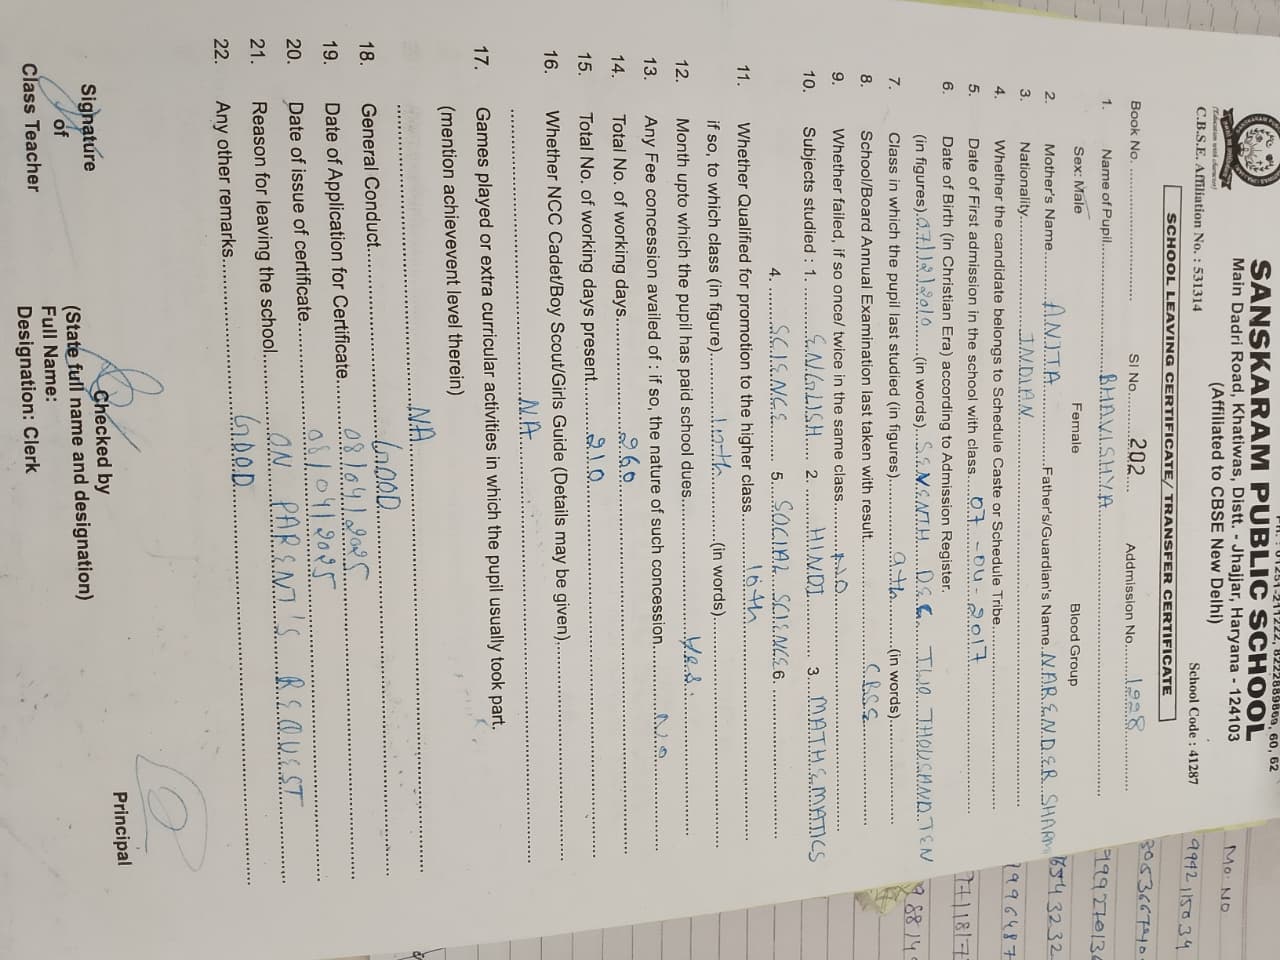 SANSKARAM PUBLIC SCHOOL
Main Dadri Road, Khatiwas, Distt. - Jhajjar, Haryana - 124103
(Affiliated to CBSE New Delhi)
(Education with character)
C.B.S.E. Affiliation No. : 531314 School Code : 41287
SCHOOL LEAVING CERTIFICATE/ TRANSFER CERTIFICATE
Book No. .................... Sl No. ........202.... Addmission No. ....1998........
1. Name of Pupil..............BHAVISHYA.............
Sex: Male Female Blood Group
2. Mother's Name........ANITA..........Father's/Guardian's Name NARENDER SHARM
3. Nationality..............INDIAN..............
4. Whether the candidate belongs to Schedule Caste or Schedule Tribe...................
5. Date of First admission in the school with class....07-04-2017..............
6. Date of Birth (in Christian Era) according to Admission Register.
(in figures).07/12/2010......(in words). SEVENTH DEC TWO THOUSAND TEN
7. Class in which the pupil last studied (in figures)..........9th........(in words)...............
8. School/Board Annual Examination last taken with result...............CBSE.............
9. Whether failed, if so once/ twice in the same class..........NO...............
10. Subjects studied : 1. ........ENGLISH.... 2. .....HINDI........ 3. ...MATHEMATICS
4. ........SCIENCE...... 5. ...SOCIAL SCIENCE 6. ..................
11. Whether Qualified for promotion to the higher class.........10th..............
if so, to which class (in figure)..........10th...........(in words)..................
12. Month upto which the pupil has paid school dues....................Yes..............
13. Any Fee concession availed of : if so, the nature of such concession..........No..........
14. Total No. of working days....................260....................
15. Total No. of working days present..........210....................
16. Whether NCC Cadet/Boy Scout/Girls Guide (Details may be given)....................
..............................NA..............................
17. Games played or extra curricular activities in which the pupil usually took part.
(mention achievevent level therein)
..............................NA..............................
18. General Conduct..............................GOOD....................
19. Date of Application for Certificate..........08/04/2025....................
20. Date of issue of certificate....................08/04/2025....................
21. Reason for leaving the school....................ON PARENT'S REQUEST
22. Any other remarks..............................GOOD....................
Signature
of
Class Teacher
Checked by
(State full name and designation)
Full Name:
Designation: Clerk
Principal
Mo. NO